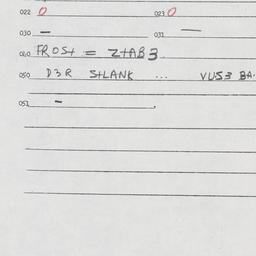 022 0 023 0
030 – 031 —
040 FROSt = ZtAB3
050 D3R StLANK ... VUS3 BA.
051 –